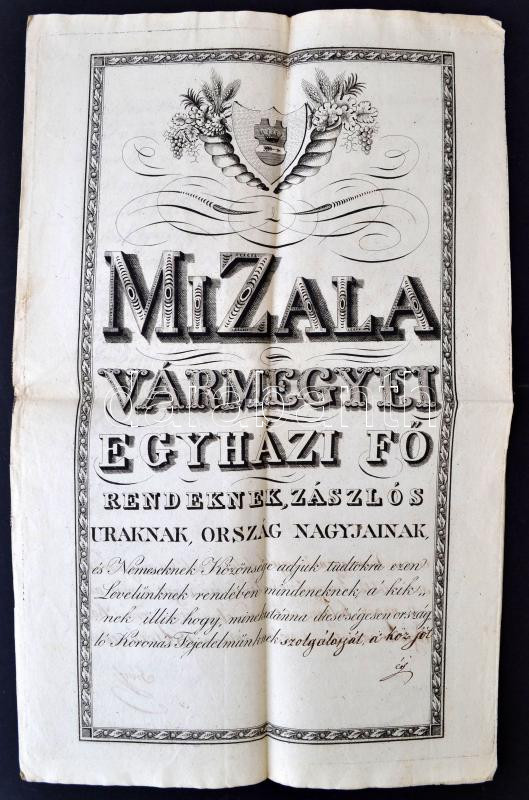 MI ZALA
VÁRMEGYEI
EGYHÁZI FŐ
RENDEKNEK, ZÁSZLÓS
URAKNAK, ORSZÁG NAGYJAINAK,
és Nemeseknek Közönsége adjuk tudtokra ezen
Levelünknek rendében mindeneknek a' kik„
nek illik hogy, minekutánna dicsőségesen ország
ló Koronás Fejedelmünknek szolgálatját, a' köz jót
és